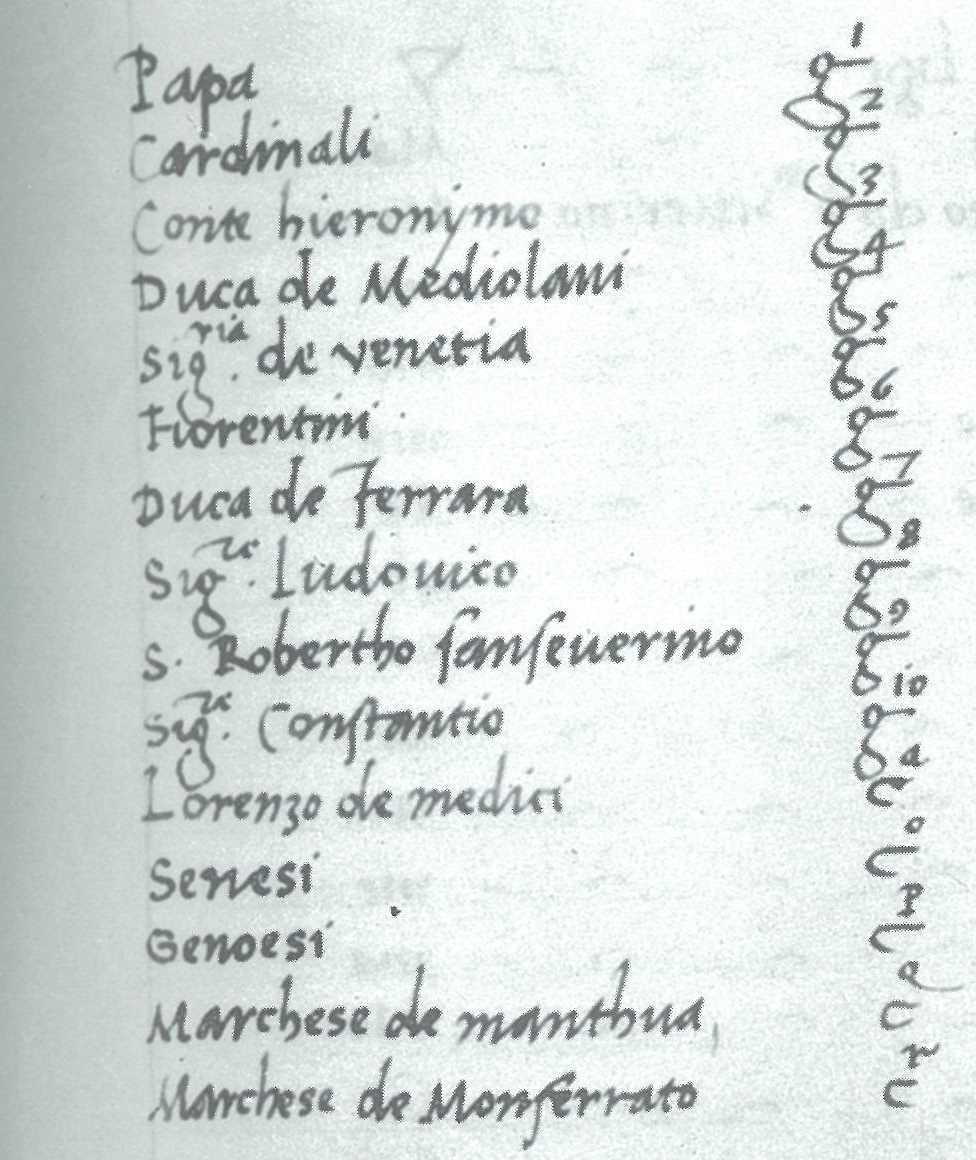 Papa g1
Cardinali g2
Conte hieronymo g3
Duca de Mediolani g4
Sig.ria de venetia g5
Fiorentini g6
Duca de Ferrara g7
Sig.re Ludouico g8
S. Robertho sanseuerino g9
Sig.re Constantio g10
Lorenzo de medici ca
Senesi co
Genoesi cp
Marchese de manthua cq
Marchese de Monferrato cr